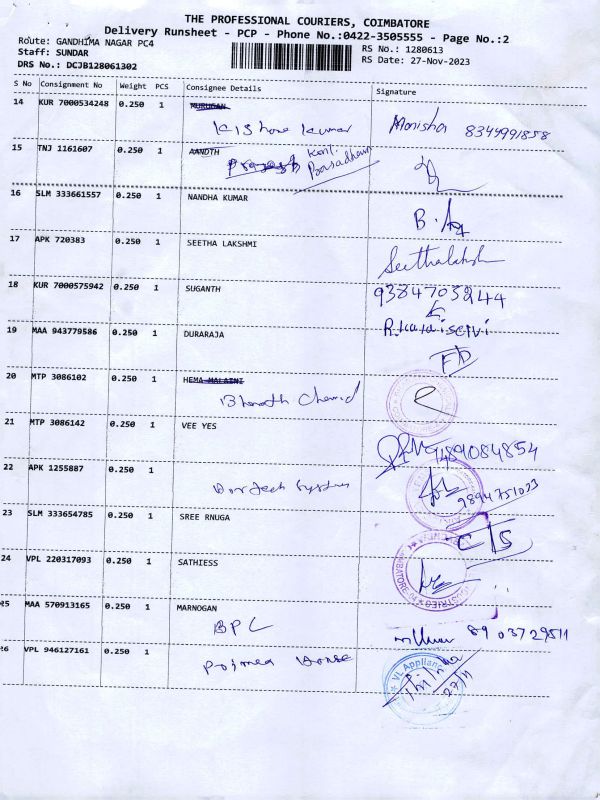 THE PROFESSIONAL COURIERS, COIMBATORE
Delivery Runsheet - PCP - Phone No.:0422-3505555 - Page No.:2
Route: GANDHIMA NAGAR PC4
RS No.: 1280613
Staff: SUNDAR
RS Date: 27-Nov-2023
DRS No.: DCJB128061302
S No Consignment No Weight PCS Consignee Details Signature
14 KUR 7000534248 0.250 1 MURUGAN
Kishore Kumar Monisha 8344991858
15 TNJ 1161607 0.250 1 AANDTH
16 SLM 333661557 0.250 1 NANDHA KUMAR
17 APK 720383 0.250 1 SEETHA LAKSHMI
Seethalakshmi
18 KUR 7000575942 0.250 1 SUGANTH 9384703244
19 MAA 943779586 0.250 1 DURARAJA
R.kalaiselvi
20 MTP 3086102 0.250 1 HEMA MALAINI
Bharath Chand
21 MTP 3086142 0.250 1 VEE YES
9489084854
22 APK 1255887 0.250 1
System 9894751023
23 SLM 333654785 0.250 1 SREE RNUGA
C/S
24 VPL 220317093 0.250 1 SATHIESS
25 MAA 570913165 0.250 1 MARNOGAN
BPL 8903729511
26 VPL 946127161 0.250 1
House
VL Appliance
27/11